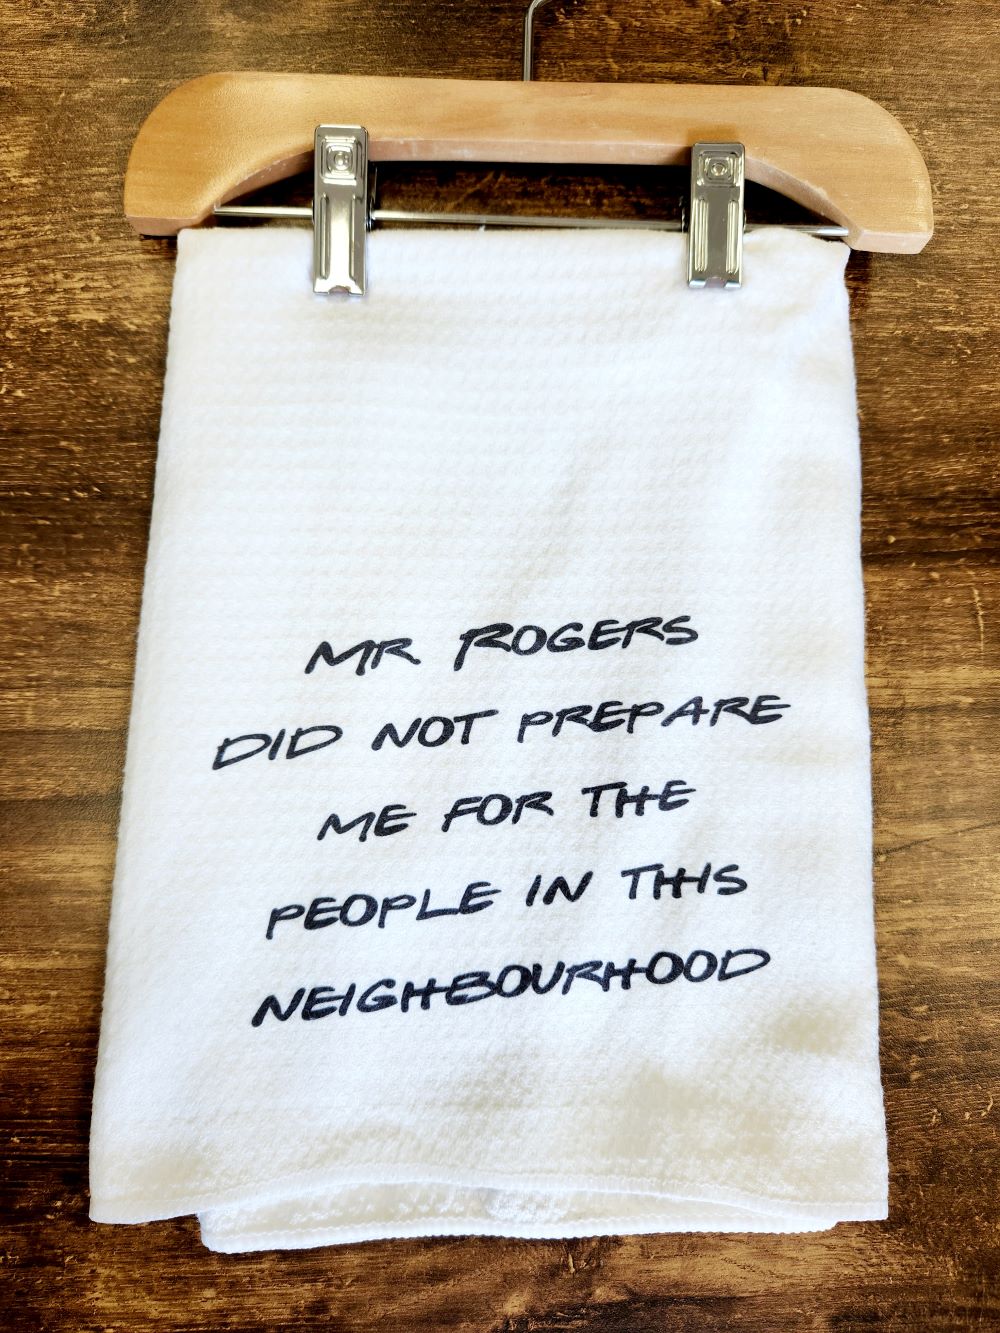 MR ROGERS
DID NOT PREPARE
ME FOR THE
PEOPLE IN THIS
NEIGHBOURHOOD